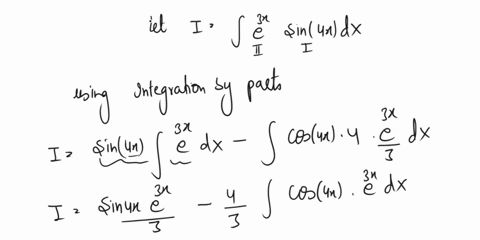 let I = ∫ e^{3x} sin(4x) dx
II I
using Integration by parts
I = sin(4x) ∫ e^{3x} dx - ∫ cos(4x) · 4 · e^{3x}/3 dx
I = sin4x e^{3x}/3 - 4/3 ∫ cos(4x) · e^{3x} dx